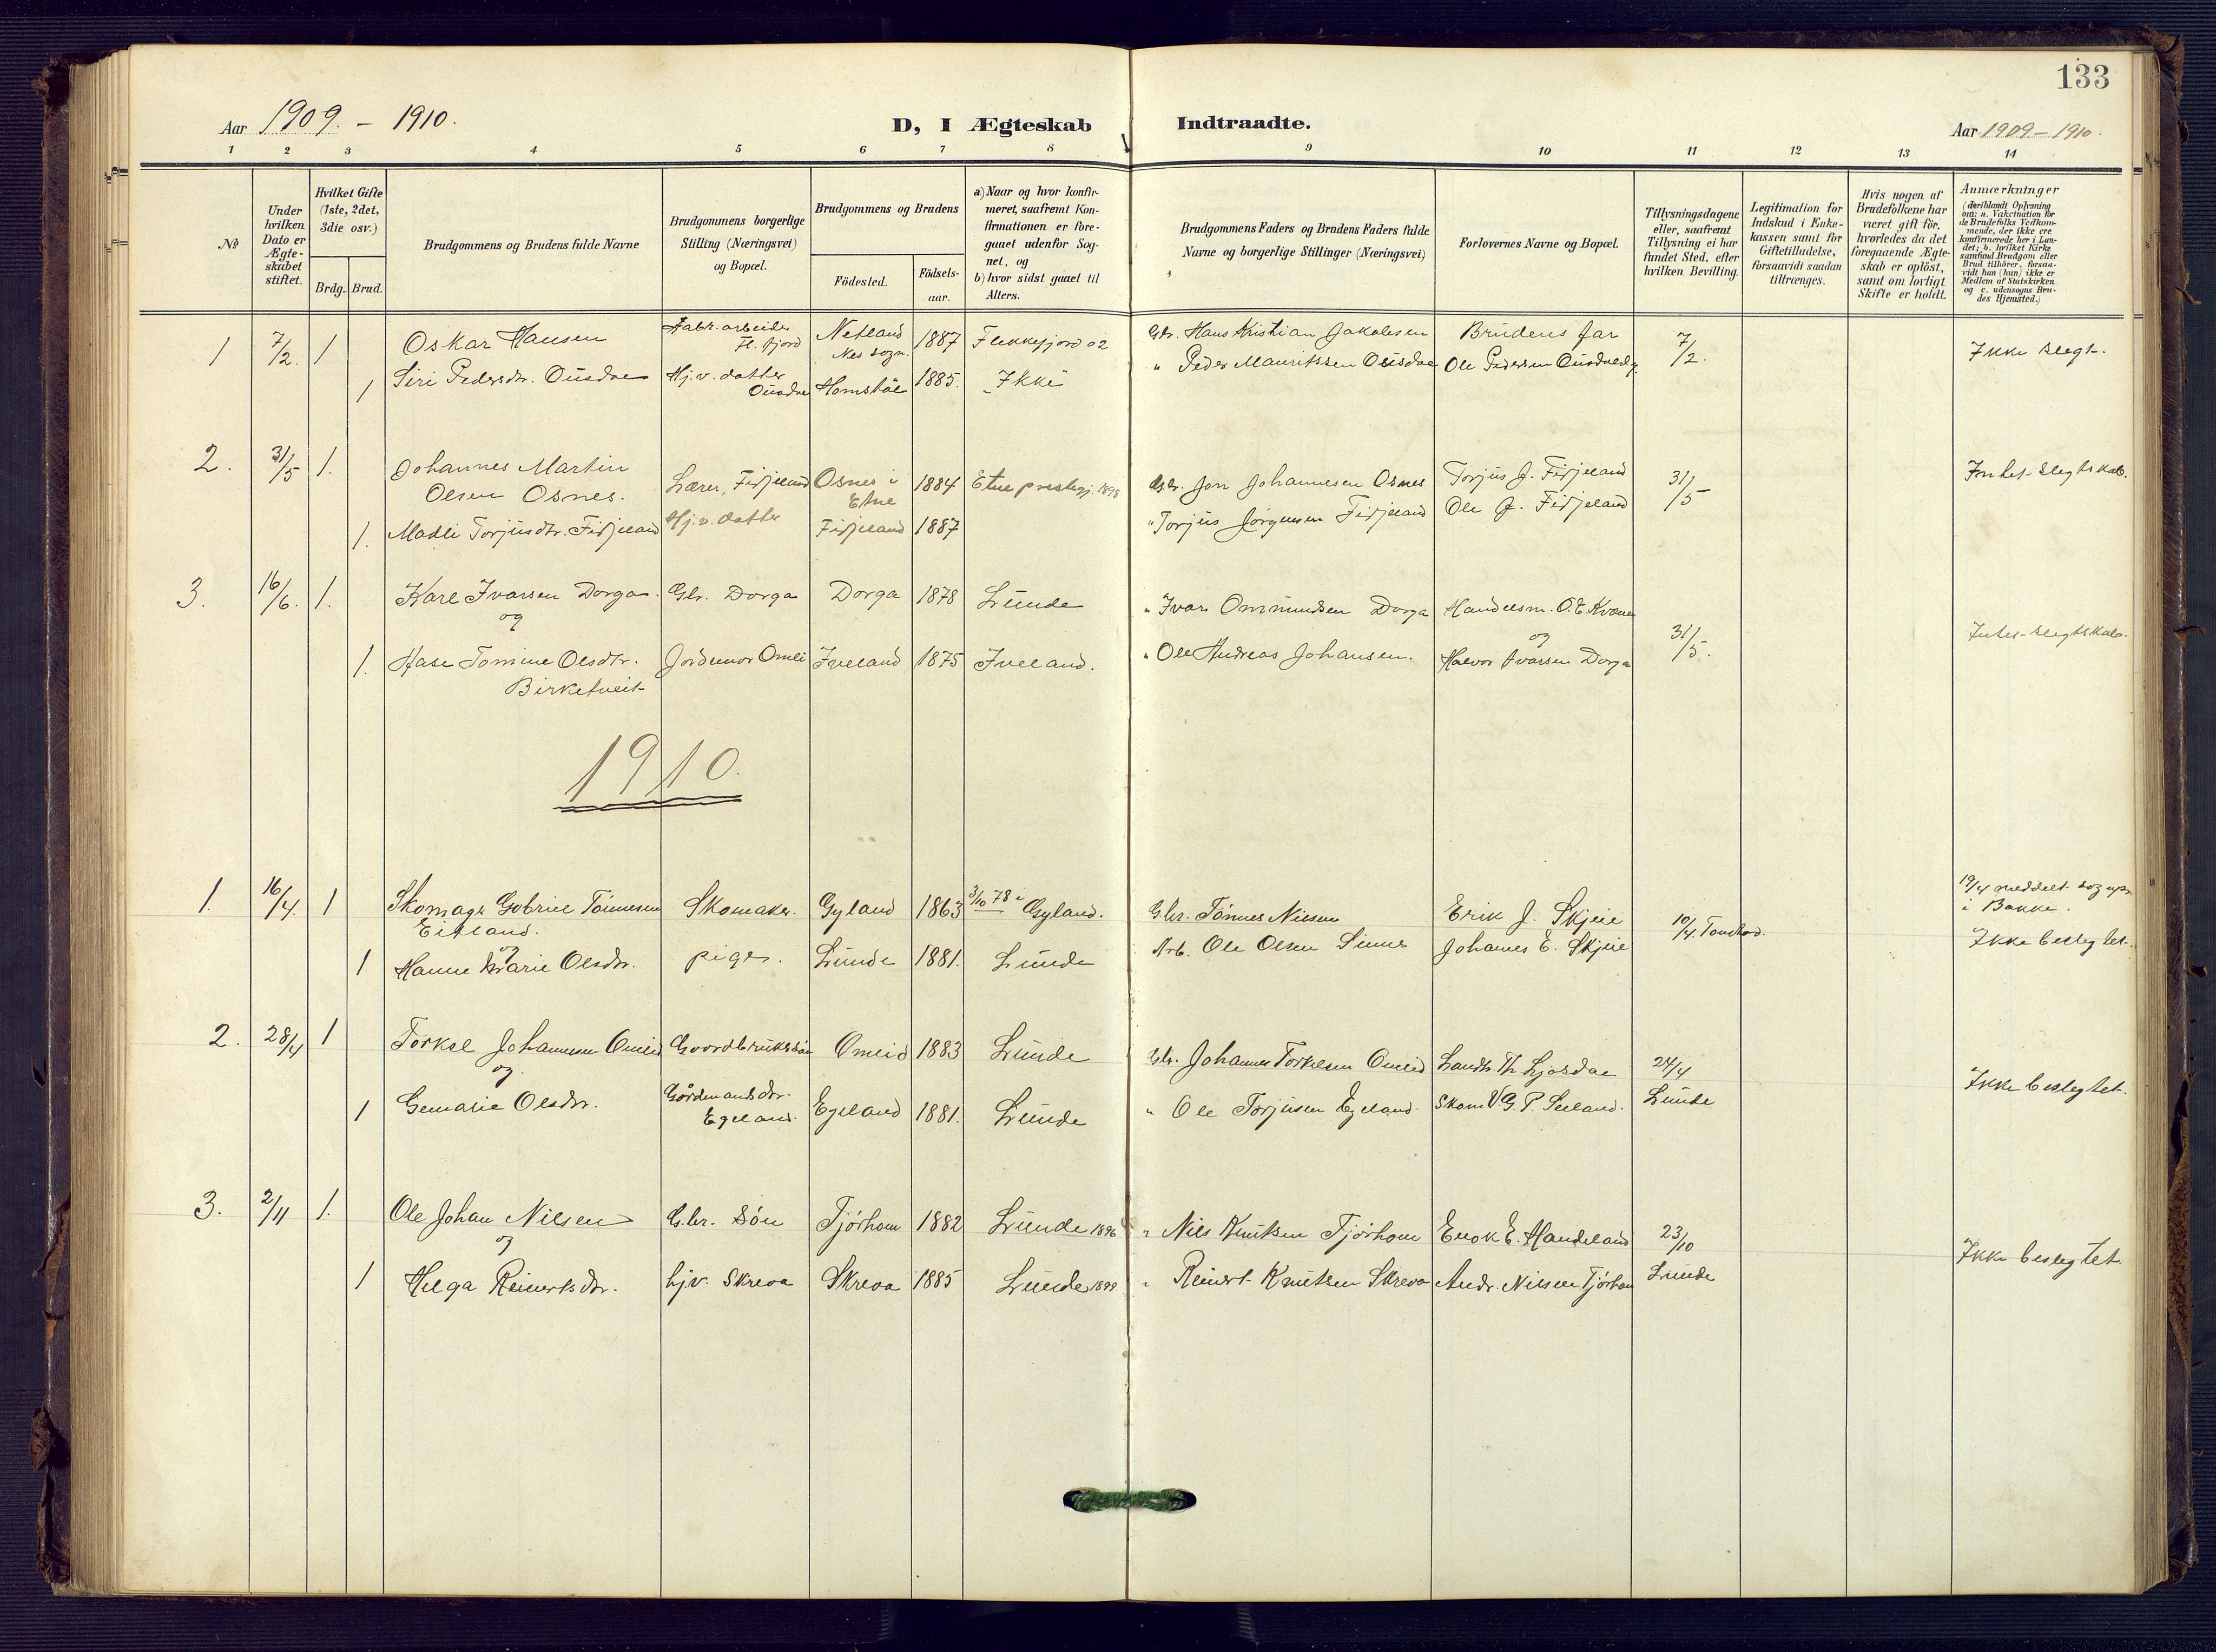 133
Aar 1909. - 1910.
D, I Ægteskab Indtraadte.
Aar 1909 - 1910.
1 2 3 4 5 6 7 8 9 10 11 12 13 14
No
Under hvilken Dato er Ægte-skabet stiftet.
Hvilket Gifte (1ste, 2det, 3die osv.)
Brdg. Brud.
Brudgommens og Brudens fulde Navne
Brudgommens borgerlige Stilling (Næringsvei) og Bopæl.
Brudgommens og Brudens
Födested.
Födsels-aar.
a) Naar og hvor konfir-meret, saafremt Kon-firmationen er fore-gaaet udenfor Sog-net, og
b) hvor sidst gaaet til Alters.
Brudgommens Faders og Brudens Faders fulde Navne og borgerlige Stillinger (Næringsvei)
Forlovernes Navne og Bopæl.
Tillysningsdagene eller, saafremt Tillysning ei har fundet Sted, efter hvilken Bevilling.
Legitimation for Indskud i Enke-kassen samt for Giftetilladelse, forsaavidt saadan tiltrænges.
Hvis nogen af Brudefolkene har været gift för, hvorledes da det foregaaende Ægte-skab er oplöst, samt om lovligt Skifte er holdt.
Anmærkninger
(deriblandt Oplysning om: a. Vakcination for de Brudefolks Vedkom-mende, der ikke ere konfirmerede her i Lan-det; b. hvilket Kirke samfund Brudgom eller Brud tilhörer, forsaa-vidt han (hun) ikke er Medlem af Statskirken og c. udensogns Bru-des Hjemsted.)
1 7/2. 1 Oskar Hansen Fabr. arbeider Fl. fjord Netland Nes sogn. 1887 Flekkefjord 02 Gbr. Hans Kristian Jakobsen Brudens far 7/2. Ikke slegt.
1 Siri Pedersdr. Ousdae Hj.v. datter Ousdae Homstøl 1885. Ikke " Peder Mauritssen Ousdae Ole Pedersen Ousdael
2. 31/5 1. Johannes Martin Olsen Osnes. Lærer, Fidjeland Osnes i Etne 1884 Etne prestegj. 1898 Gbr. Jon Johannesen Osnes Torjus J. Fidjeland 31/5 Intet slegtskab.
1. Madli Torjusdtr. Fidjeland Hj.v. datter Fidjeland 1887 " Torjus Jørgensen Fidjeland Ole J. Fidjeland
3. 16/6. 1. Karl Ivarsen Dorga. Gbr. Dorga Dorga 1878 Lunde " Ivar Ommundsen Dorga Handelsm. O. E. Kvænn
og og 31/5. Intet slegtskab.
1. Aase Tomine Olsdtr. Birketveit Jordmor Omli Iveland 1875 Iveland. " Ole Andreas Johansen. Halvor Ivarsen Dorga
1910.
1. 16/4. 1 Skomager Gabriel Tønnesen Eitland. Skomaker. Gyland 1863 3/10 78 i Gyland. Gbr. Tønnes Nilsen Erik J. Skjeie 10/4. Tonstad. 19/4 meddelt sognpr. i Bakke.
og
1 Hanne Marie Olsdtr. pige. Lunde 1881. Lunde Arb. Ole Olsen Sinnes Johannes E. Skjeie Ikke beslegtet.
2. 28/4 1 Torkel Johannesen Omlid Gaardbrukersøn Omlid 1883 Lunde Gbr. Johannes Torkelsen Omlid Landh. Th. Ljosdae 24/4 Lunde
og
1 Gemarie Olsdtr. Gårdmandsdr. Egeland. Egeland 1881. Lunde " Ole Torjusen Egeland. Skom. G. P. Seland. Ikke beslegtet.
3. 2/11 1. Ole Johan Nilsen Gbr. søn Tjørhom 1882 Lunde 1896 " Nils Knutsen Tjørhom Enok E. Haudeland 23/10 Lunde
og
1 Helga Reinertsdtr. hjv. Skreva Skreva 1885 Lunde 1899 " Reinert Knutsen Skreva Andr. Nilsen Tjørhom Ikke beslegtet.